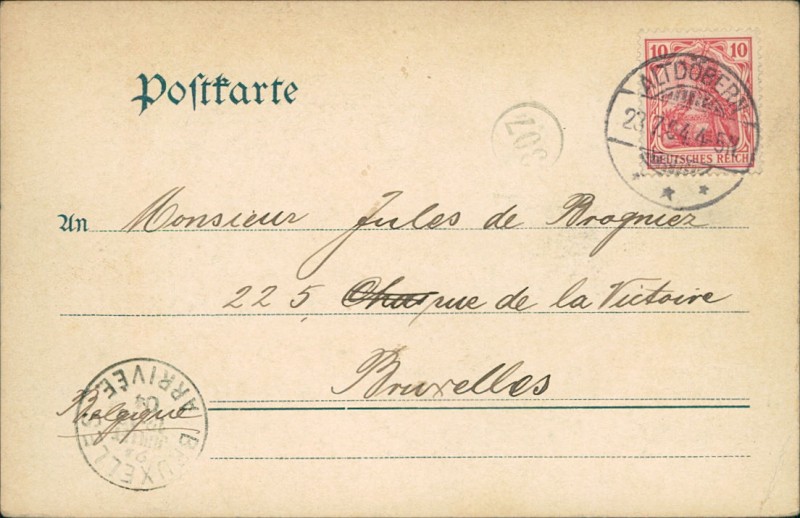 Postkarte
10 10
DEUTSCHES REICH
ALTDÖBERN
23.7.04.4-5N
307
An Monsieur Jules de Brognier
225, rue de la Victoire
Bruxelles
Belgique
BRUXELLES
ARRIVÉE
04